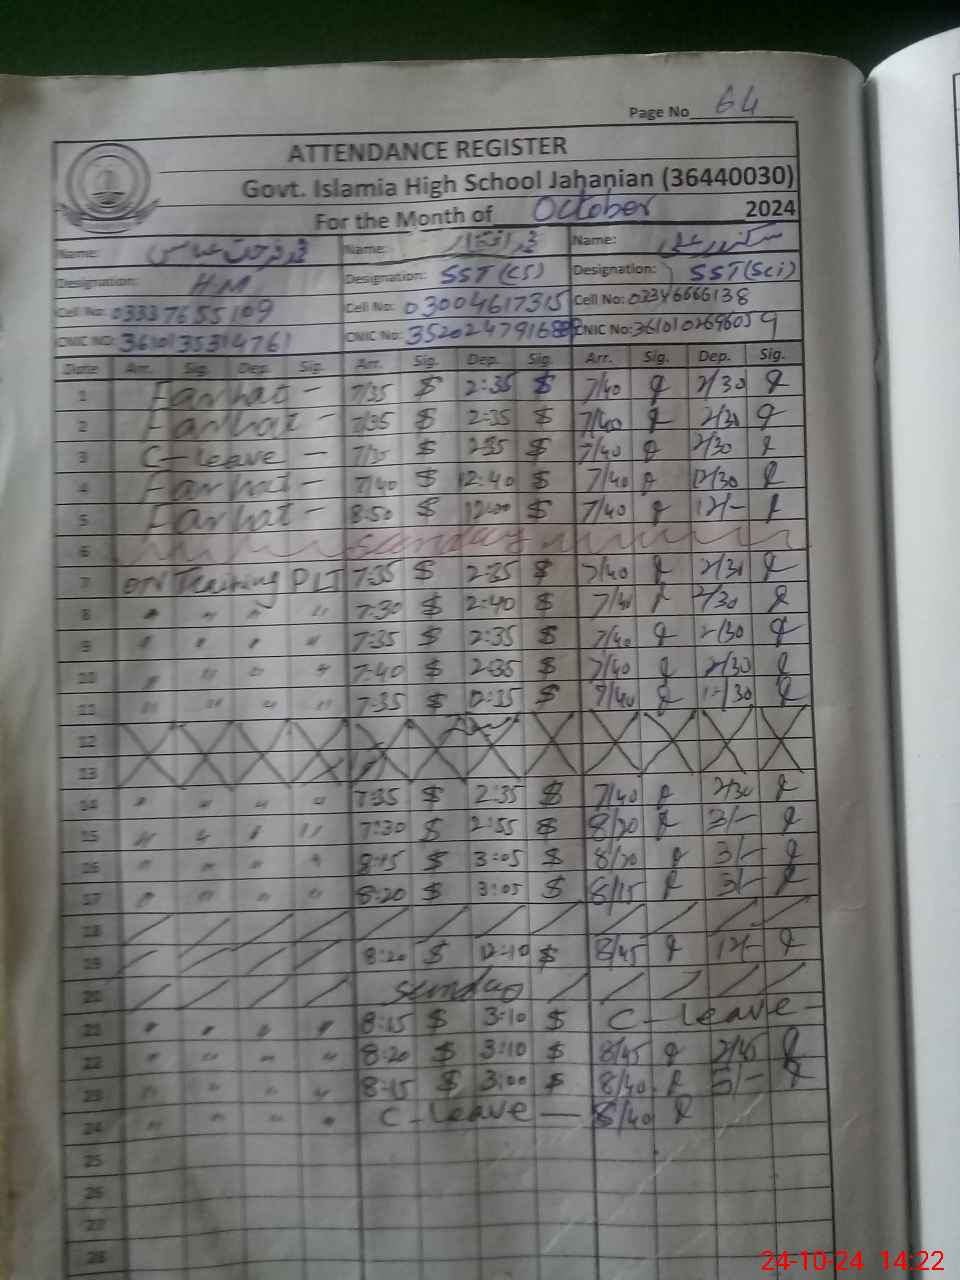 Page No 64
ATTENDANCE REGISTER
Govt. Islamia High School Jahanian (36440030)
For the Month of October 2024
Name: محمد فرحت عباس Name: محمد افتخار Name: سکندر علی
Designation: H.M Designation: SST (CS) Designation: SST (Sci)
Cell No: 03337655109 Cell No: 03004617315 Cell No: 02346666138
CNIC NO: 3610135314761 CNIC No: CNIC No: 3610102696059
Date Arr. Sig. Dep. Sig. Arr. Sig. Dep. Sig. Arr. Sig. Dep. Sig.
1 Farhat - 7/35 $ 2:35 $ 7/40 2/30
2 Farhat - 7/35 $ 2:35 $ 7/40 2/30
3 C-leave - 7/35 $ 2:35 $ 7/40 2/30
4 Farhat - 7/40 $ 12:40 $ 7/40 12/30
5 Farhat - 8:50 $ 12:00 $ 7/40 12/-
6 sunday
7 ON Training PLI 7:35 $ 2:35 $ 7/40 2/30
8 " " " " 7:30 $ 2:40 $ 2/30
9 " " " " 7:35 $ 2:35 $ 7/40 2/30
10 " " " " 7:40 $ 2:35 $ 7/40 2/30
11 " " " " 7:35 $ $ 7/40 12/30
12
13
14 " " " " 7:35 $ 2:35 $ 7/40 2/30
15 " " " " 7:30 $ 2:55 $ 8/20 3/-
16 " " " " 8:15 $ 3:05 $ 8/20 3/-
17 " " " " 8:20 $ 3:05 $ 8/15 3/-
18
19 8:20 $ 12:10 $ 8/45 12/-
20 sunday
21 " " " " 8:15 $ 3:10 $ C-leave-
22 " " " " 8:20 $ 3:10 $ 8/45 2/45
23 " " " " 8:15 $ 3:00 $ 8/40
24 " " " " C-leave - 8/40
25
26
27
28
24-10-24 14:22